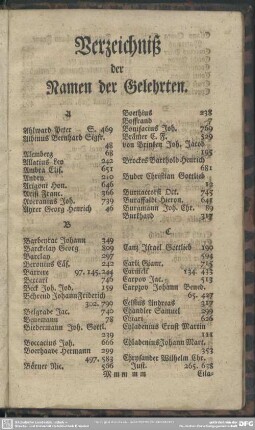 Verzeichniß
der
Namen der Gelehrten.
A
Ahlward Peter S. 469
Albinus Bernhard Sigfr.
48
Alemberg 68
Allatius Leo 242
Ambra Elis. 651
Andry 210
Arigoni Hon. 646
Arisi Franc. 366
Asceanius Joh. 739
Ayrer Georg Henrich 46
B
Barbeyrac Johann 349
Barckelay Georg 809
Barclay 297
Baronius Cäs. 242
Barrere 97. 145. 244
Beccari 740
Beck Joh. Jod. 159
Behrend Johann Friederich
302. 790
Belgrade Jac. 740
Benzone 78
Biedermann Joh. Gottl.
239
Boccacius Joh. 666
Boerhaave Hermann 299
497. 583
Börner Nic. 506
Boethius 238
Boffrand
Bonifacius Joh. 769
Brämer C. F. 529
von Brinken Joh. Jacob
193
Brockes Barthold Henrich
681
Buder Christian Gottlieb
13
Burnacorsi Oct. 745
Buraffaldi Hieron. 648
Burgmann Joh. Chr. 89
Burkhard 317
C
Canz Israel Gottlieb 190
594
Carli Gianr. 715
Carmeli 134. 433
Carpov Jac. 513
Carpzov Johann Bened.
65. 427
Celsius Andreas 317
Chandler Samuel 299
Chais 626
Chladenius Ernst Martin
121
Chladenius Johann Mart.
353
Chrysander Wilhelm Chr.
Just. 265. 638
M m m m m